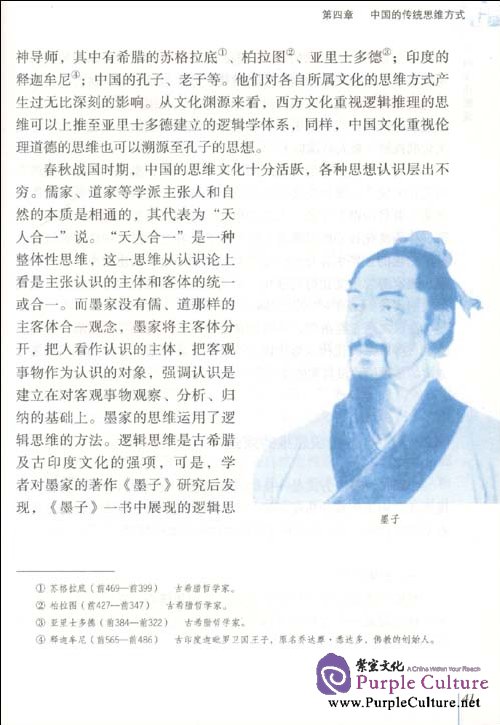 第四章 中国的传统思维方式
神导师，其中有希腊的苏格拉底①、柏拉图②、亚里士多德③；印度的
释迦牟尼④；中国的孔子、老子等。他们对各自所属文化的思维方式产
生过无比深刻的影响。从文化渊源来看，西方文化重视逻辑推理的思
维可以上推至亚里士多德建立的逻辑学体系，同样，中国文化重视伦
理道德的思维也可以溯源至孔子的思想。
春秋战国时期，中国的思维文化十分活跃，各种思想认识层出不
穷。儒家、道家等学派主张人和自
然的本质是相通的，其代表为“天
人合一”说。“天人合一”是一种
整体性思维，这一思维从认识论上
看是主张认识的主体和客体的统一
或合一。而墨家没有儒、道那样的
主客体合一观念，墨家将主客体分
开，把人看作认识的主体，把客观
事物作为认识的对象，强调认识是
建立在对客观事物观察、分析、归
纳的基础上。墨家的思维运用了逻
辑思维的方法。逻辑思维是古希腊
及古印度文化的强项，可是，学
者对墨家的著作《墨子》研究后发
现，《墨子》一书中展现的逻辑思
墨子
① 苏格拉底（前469—前399） 古希腊哲学家。
② 柏拉图（前427—前347） 古希腊哲学家。
③ 亚里士多德（前384—前322） 古希腊哲学家。
④ 释迦牟尼（前565—前486） 古印度迦毗罗卫国王子，原名乔达摩·悉达多，佛教的创始人。
紫室文化 A China Within Your Reach
Purple Culture
www.PurpleCulture.net
41